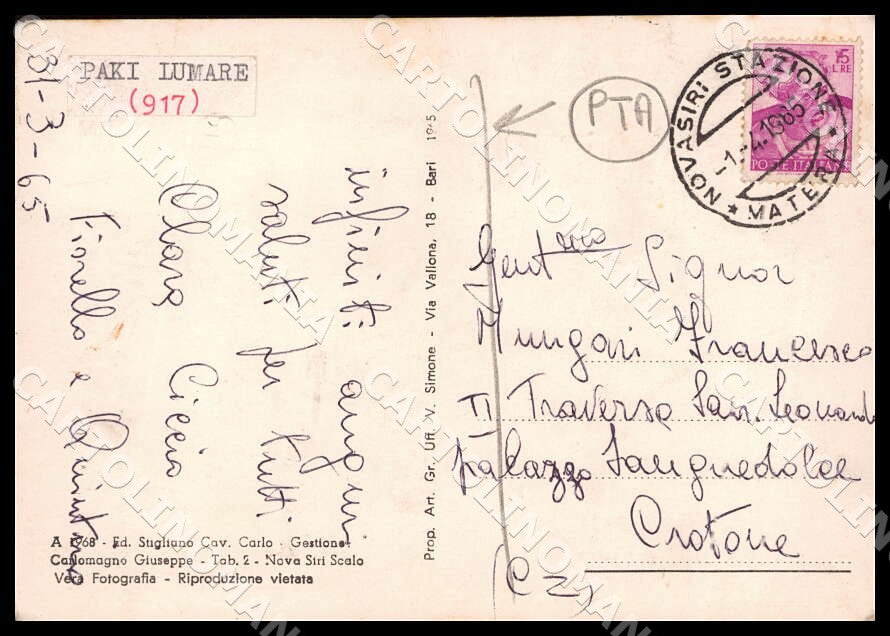 31-3-65
PAKI LUMARE
(917)
infiniti auguri
saluti per tutti
Clara Ciccio
Fiorella e Quintino
A 1968 - Ed. Stigliano Cav. Carlo - Gestione
Carlomagno Giuseppe - Tab. 2 - Nova Siri Scalo
Vera Fotografia - Riproduzione vietata
Prop. Art. Gr. Uff. V. Simone - Via Vallona, 18 - Bari 1945
PTA
NOVASIRI STAZIONE
1.-4.1965
★ MATERA ★
15
LIRE
POSTE ITALIANE
Gent.mo Signor
Mungari Francesco
II Traversa San Leonardo
palazzo Sanguedolce
Crotone
(CZ)
CARTOLINOMANIA